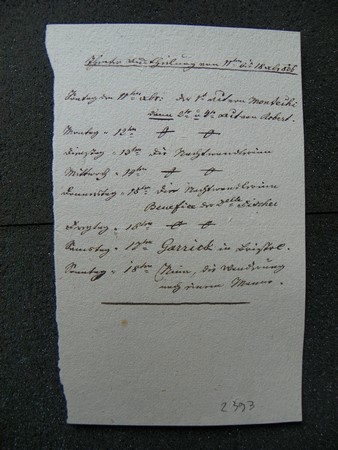 Theater Austheilung vom 11ten bis 18 xbr 836
Sontag den 11ten xbr: der 1t Act von Montechi
dann 2te u 3te Act von Robert.
Montag " 12ten
Dienstag " 13ten die Nachtwandlerin
Mittwoch " 14ten
Donnerstag " 15ten Die Nachtwandlerin
Benefice der Dlle Fischer
Freytag " 16ten
Samstag " 17ten Garrick in Bristol.
Sonntag " 18ten die Wanderung
nach einem Manne.
2393